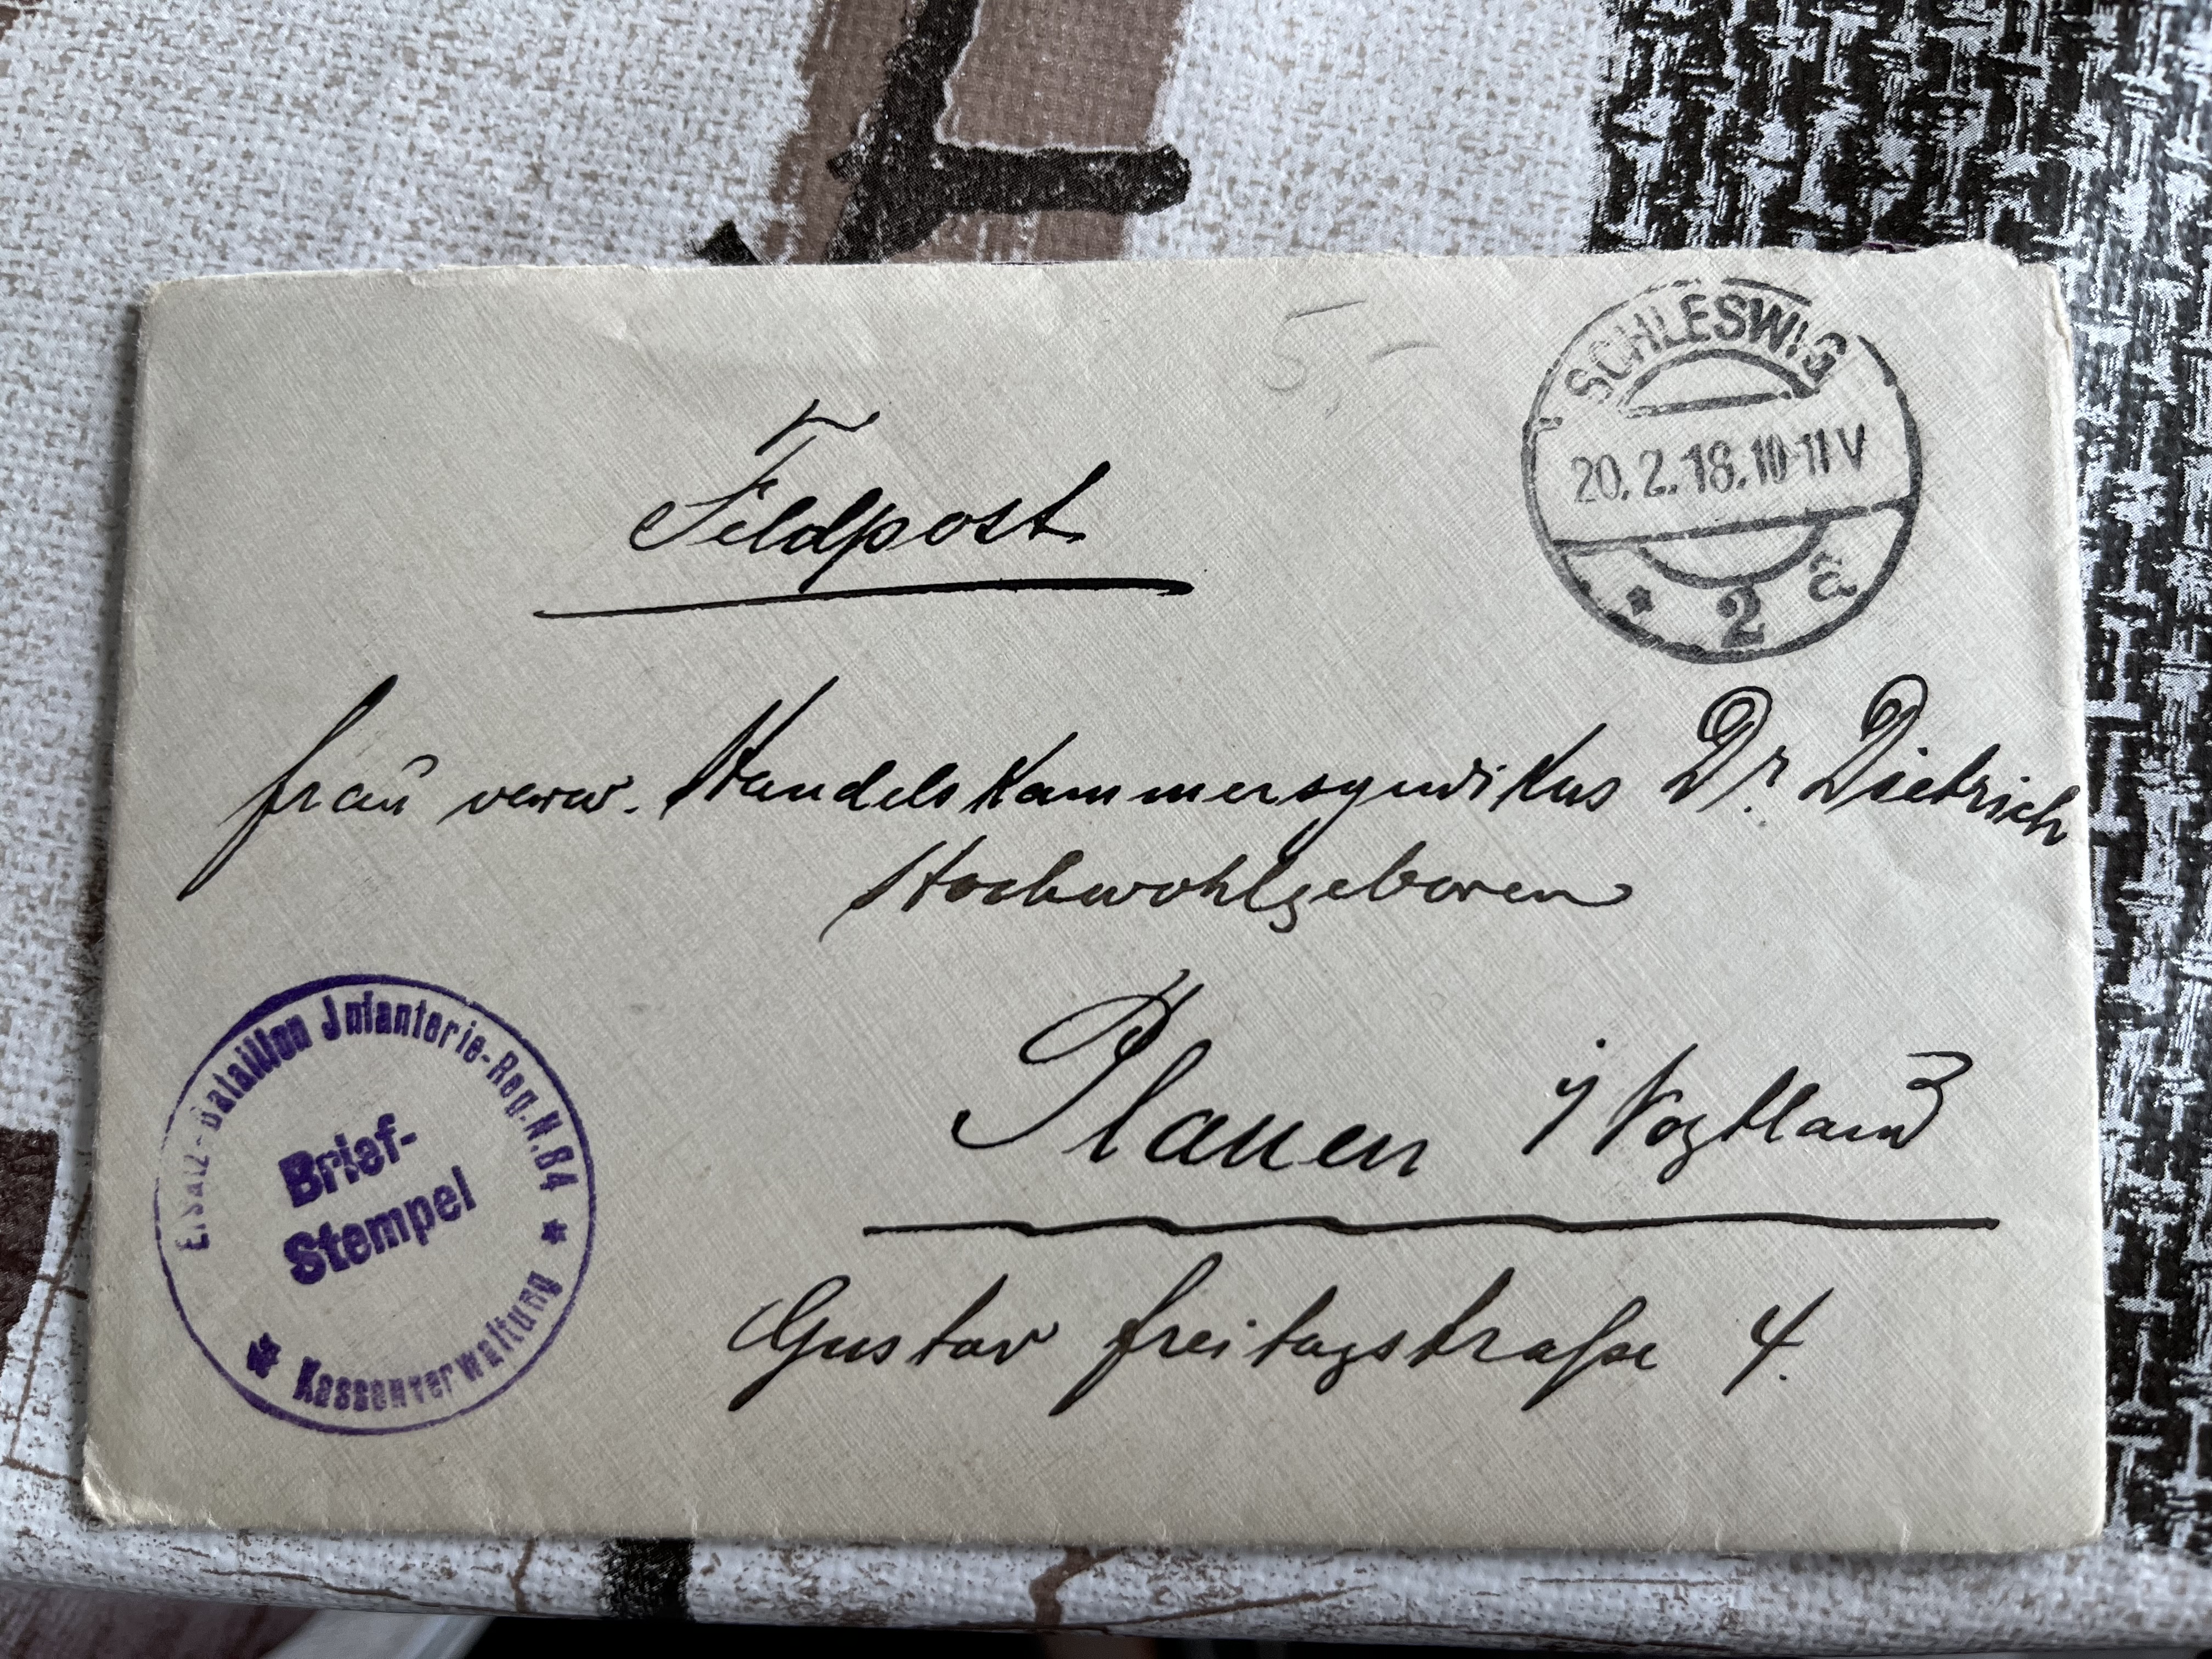 5-
SCHLESWIG
20.2.18.10-11 V
* 2 a
Feldpost
Frau verw. Handelskammersyndikus Dr. Dietrich
Hochwohlgeboren
Plauen i/Vogtland
Gustav Freitagstraße 4.
Ersatz-Bataillon Jnfanterie-Reg. N. 84
Brief-
Stempel
* Kassenverwaltung *